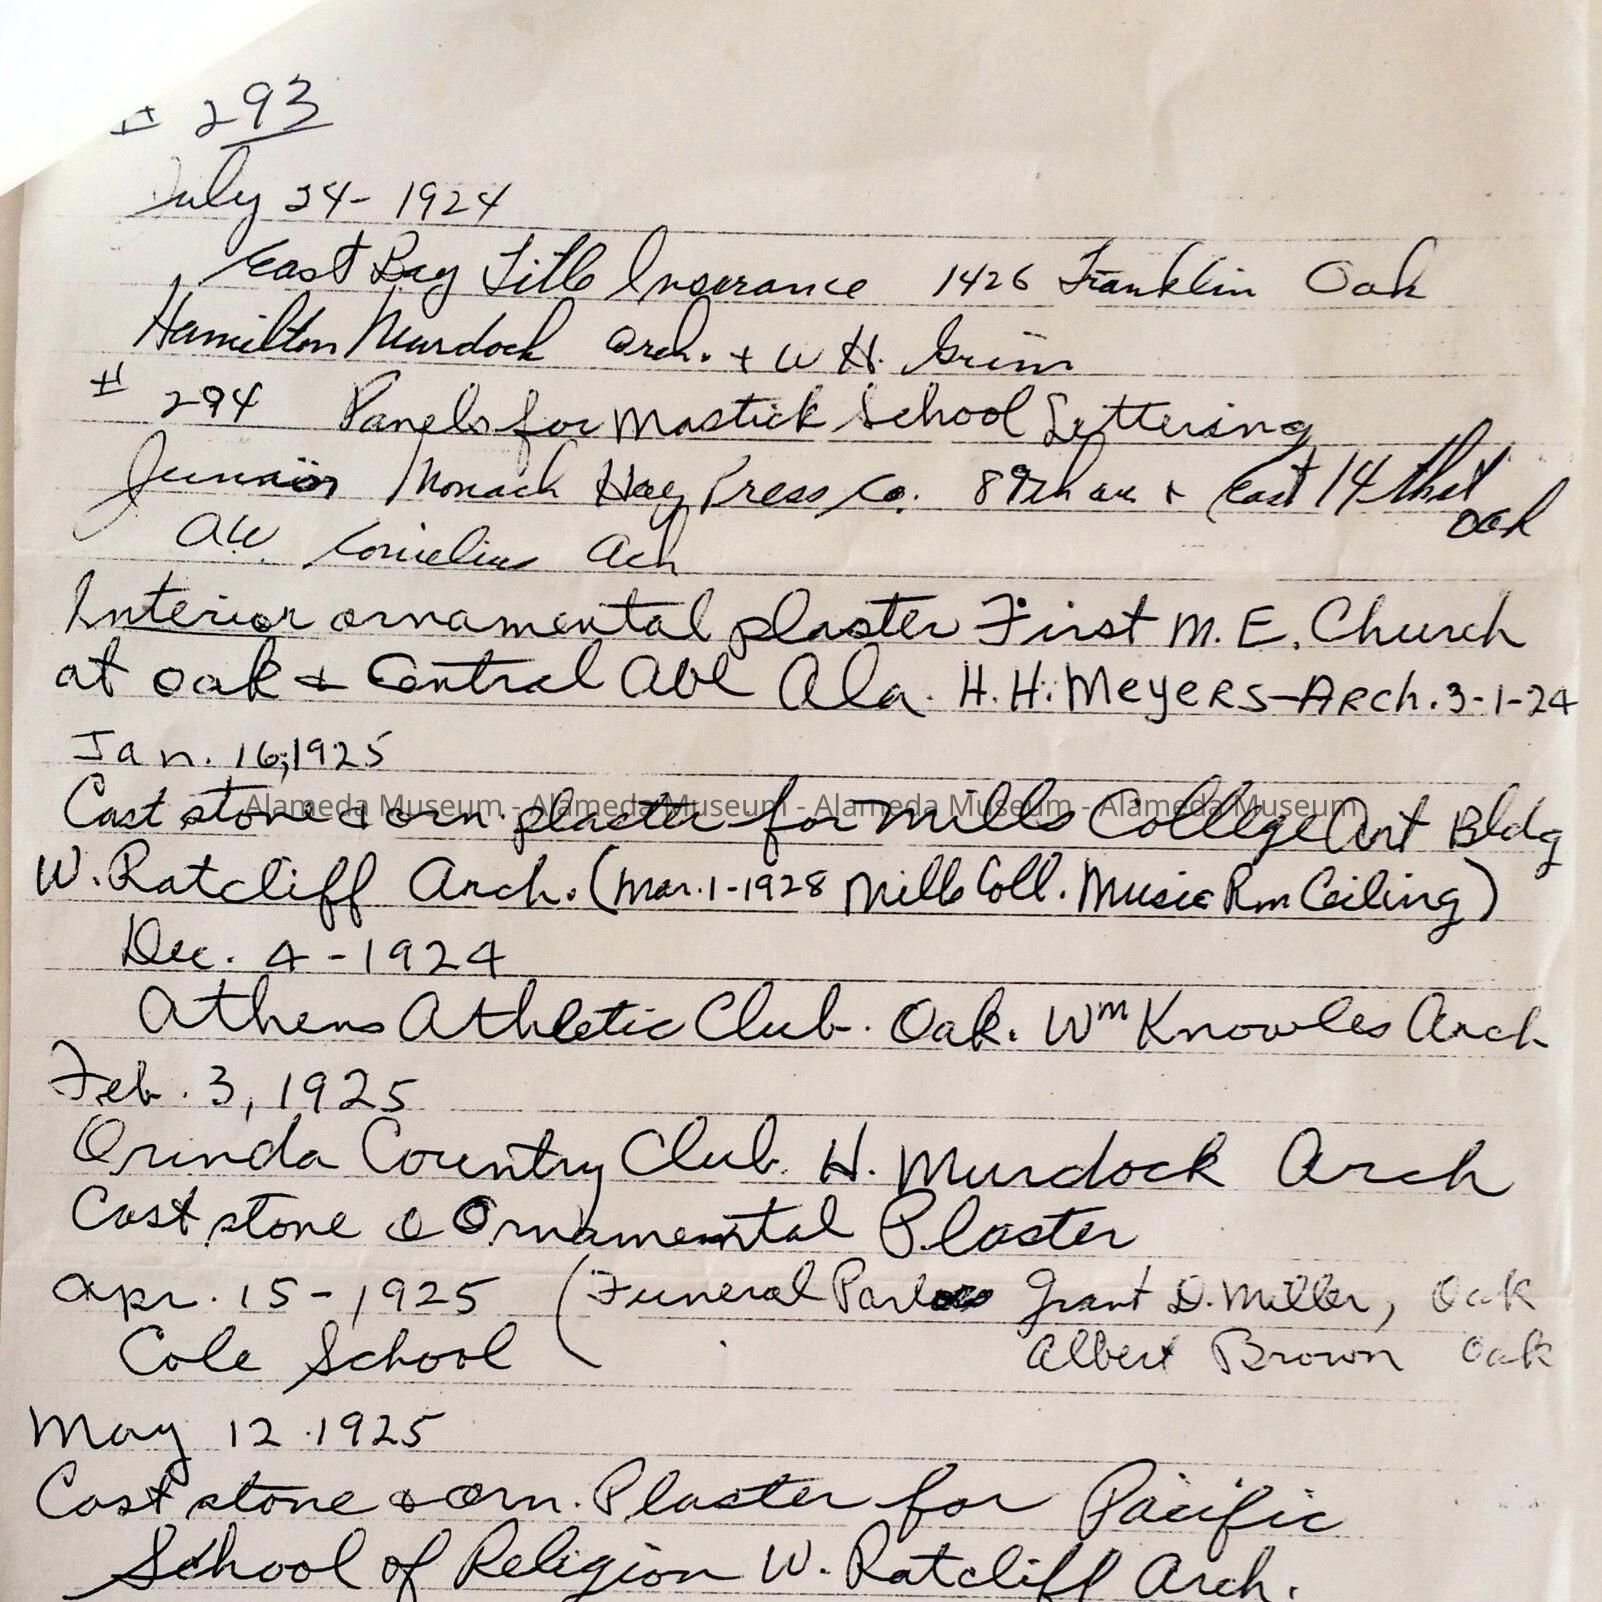 # 293
July 24- 1924
East Bay Title Insurance 1426 Franklin Oak
Hamilton Murdock Arch. + W H. Grim
# 294 Panels for Mastick School Lettering
Junior Monach Hay Press Co. 89th ave + East 14th St
Oak
A.W. Cornelius Ach
Interior ornamental plaster First M.E. Church
at Oak & Central Ave Ala. H.H. Meyers-Arch. 3-1-24
Jan. 16, 1925
Cast stone & orn. plaster for Mills College Art Bldg
Alameda Museum - Alameda Museum - Alameda Museum - Alameda Museum
W. Ratcliff Arch. (Mar. 1-1928 Mills Coll. Music Rm Ceiling)
Dec. 4-1924
Athens Athletic Club. Oak. Wm Knowles Arch
Feb. 3, 1925
Orinda Country Club. H. Murdock Arch
Cast stone & Ornamental Plaster
Apr. 15-1925 (Funeral Parlors Grant D. Miller, Oak
Cole School Albert Brown Oak
May 12. 1925
Cast stone & orn. Plaster for Pacific
School of Religion W. Ratcliff Arch.